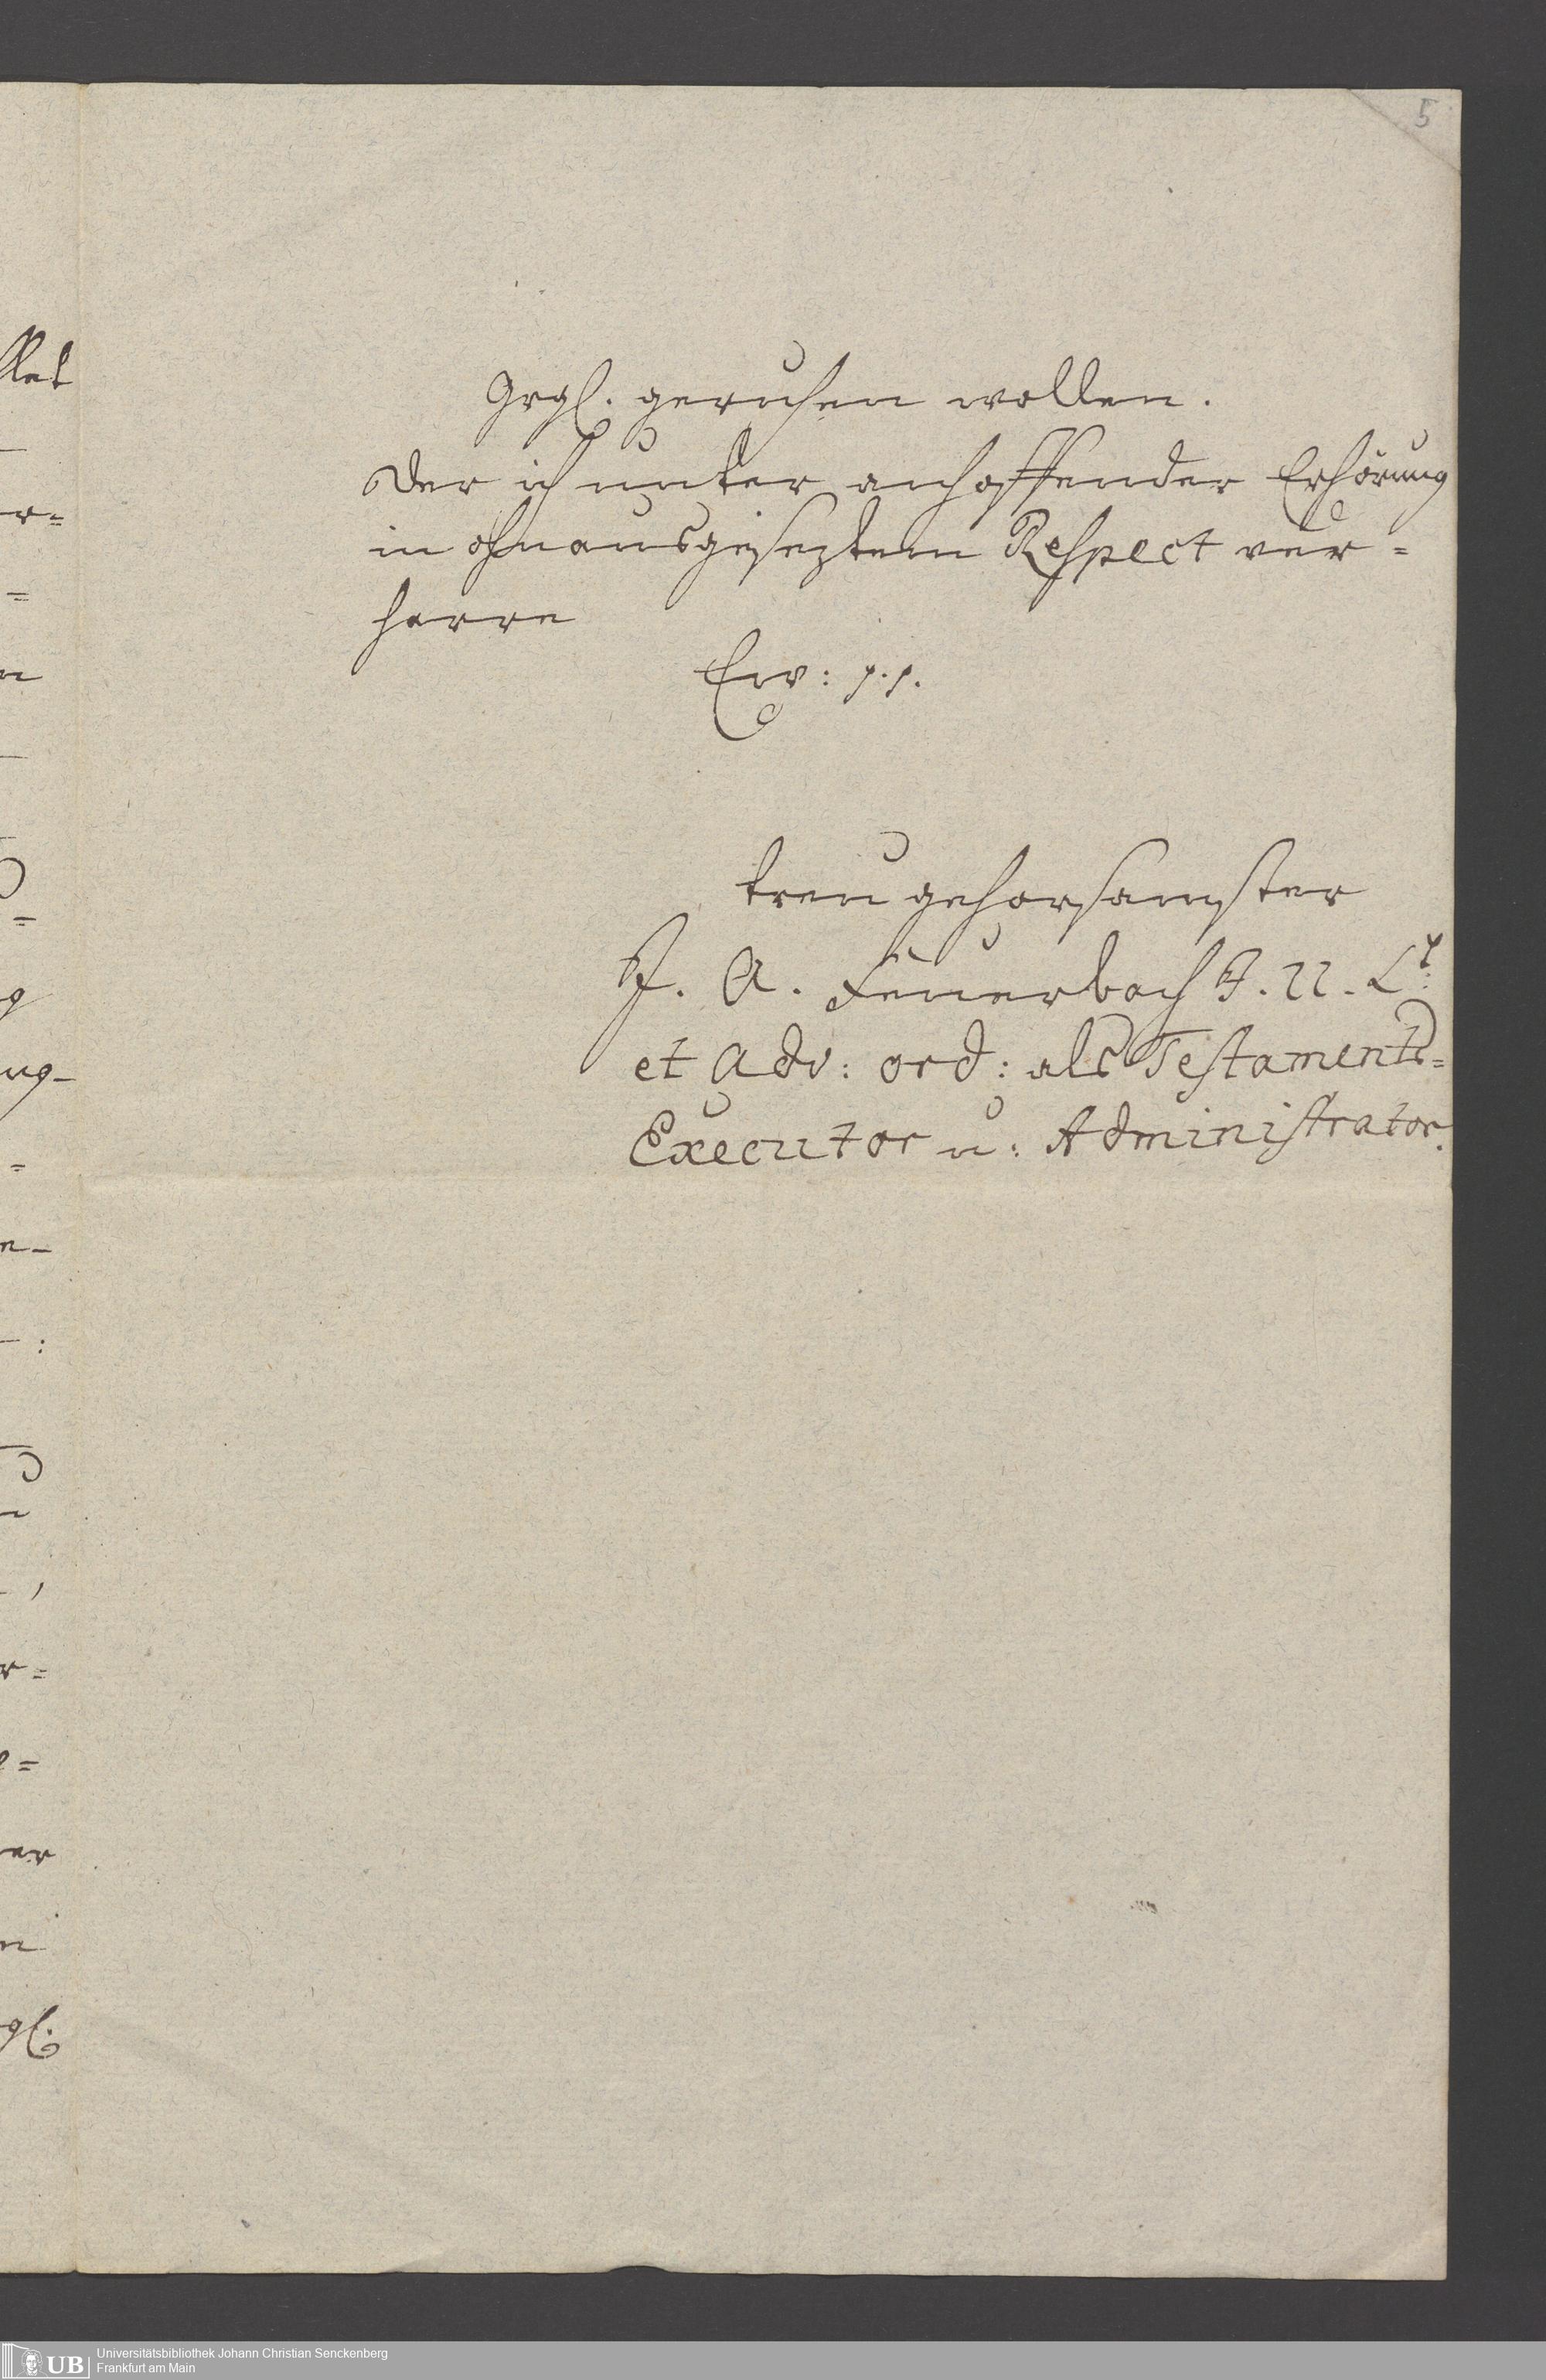 5
Grgl. geruhen wollen.
Der ich unter anhoffender Erhörung
in ohnausgeseztem Respect ver=
harre
Ew: p.p.
treu gehorsamster
J. A. Feuerbach J. U. Lt:
et Adv: ord: als Testaments=
Executor u: Administrator.
UB
Universitätsbibliothek Johann Christian Senckenberg
Frankfurt am Main